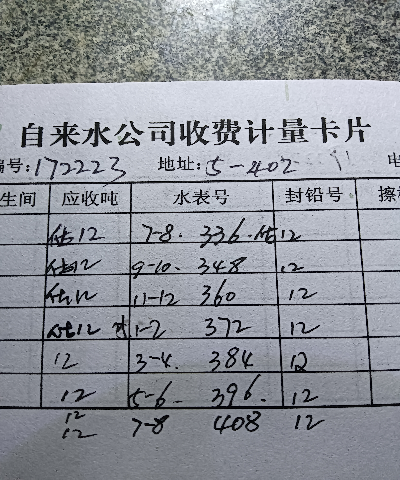 自来水公司收费计量卡片
编号:172223 地址:5-402 电
生间 应收吨 水表号 封铅号 擦
估12 7-8. 336.估12
估12 9-10. 348 12
估12 11-12 360 12
估12 1-2 372 12
12 3-4. 384 12
12 5-6. 396. 12
12
12 7-8 408 12